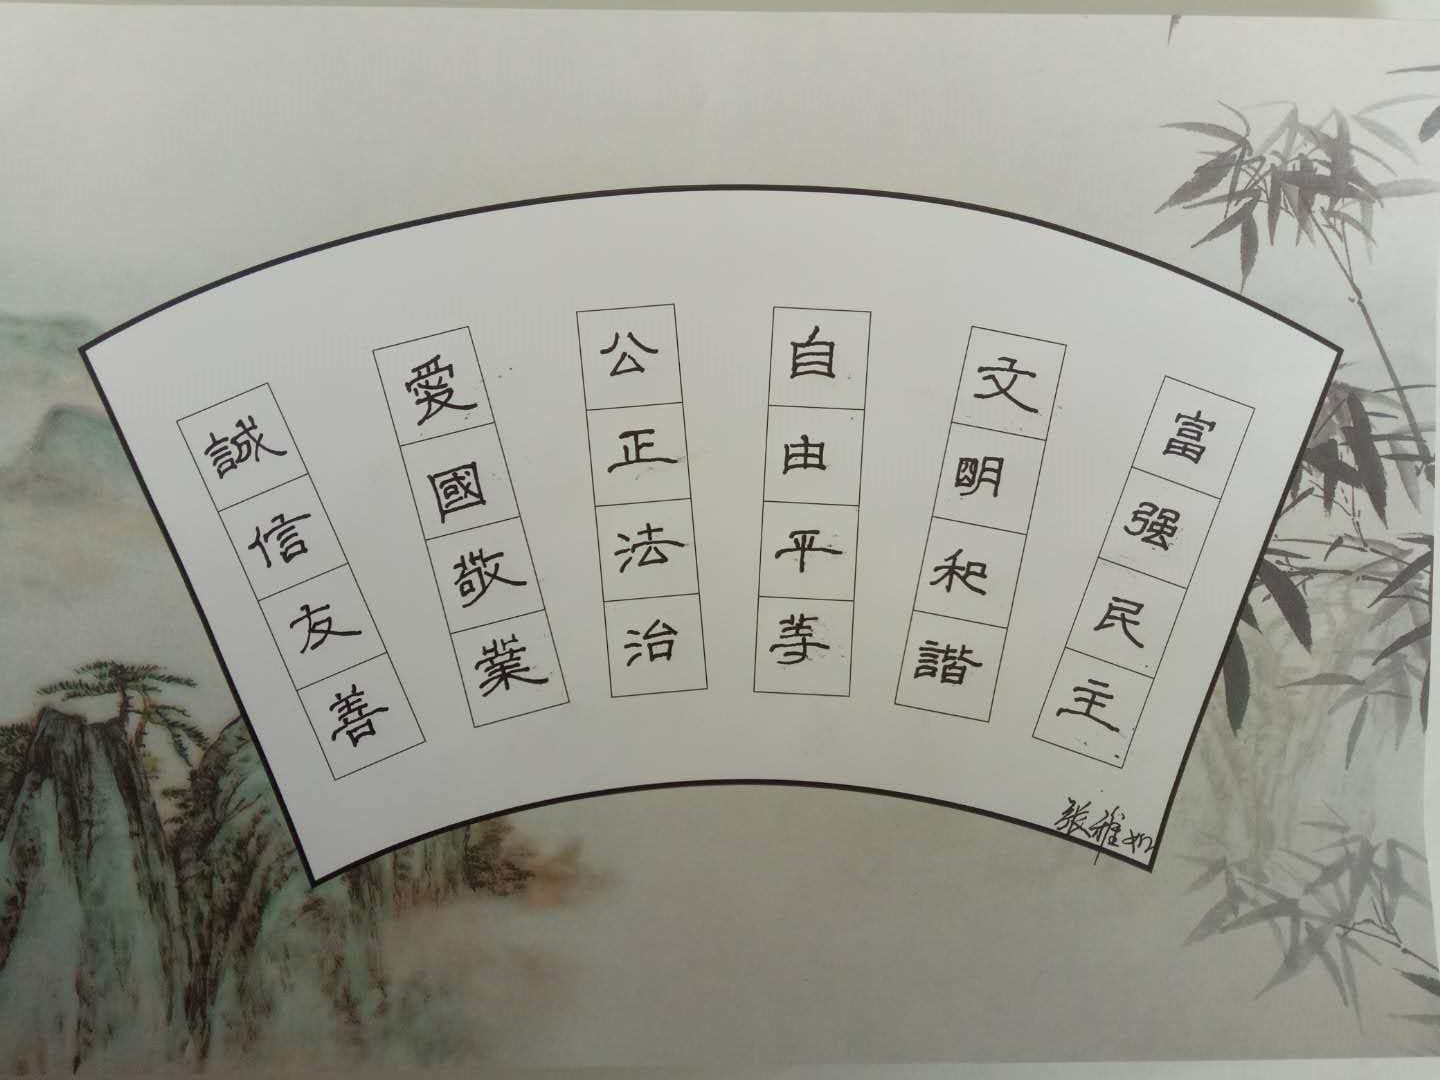 富强民主
文明和諧
自由平等
公正法治
愛國敬業
誠信友善
张雅如